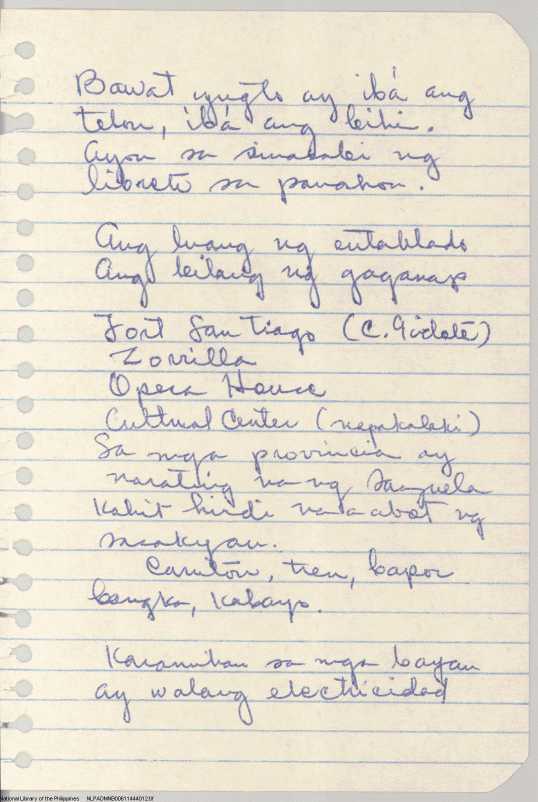 Bawat yugto ay ibá ang
telon, ibá ang bihis.
Ayon sa sinasabi ng
libreto sa panahon.
Ang luang ng entablado
Ang bilang ng gaganap
Fort Santiago (C.
Zorrilla
Opera House
Cultural Center (napakalaki)
Sa mga provincia ay
narating na ng Sarzuela
Kahit hindi naaabot ng
sasakyan.
Cariton, tren, bapor
bangka, Kabayo.
Karamihan sa mga bayan
ay walang electricidad
National Library of the Philippines